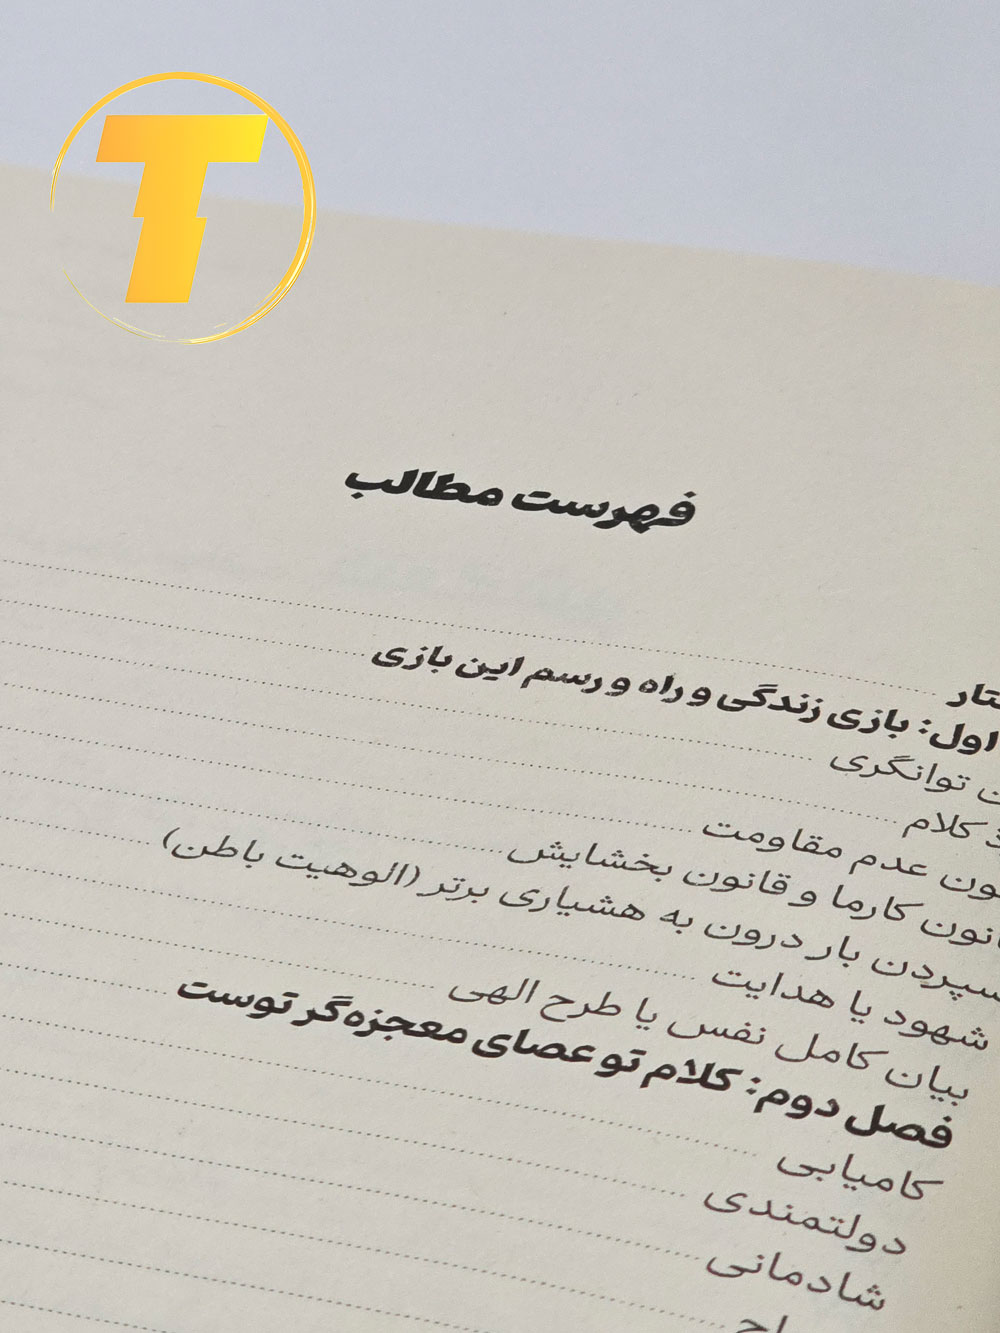 T
فهرست مطالب
اول: بازی زندگی و راه و رسم این بازی
توانگری
کلام
عدم مقاومت
کارما و قانون بخشایش
سپردن بار درون به هشیاری برتر (الوهیت باطن)
شهود یا هدایت
بیان کامل نفس یا طرح الهی
فصل دوم: کلام تو عصای معجزه‌گر توست
کامیابی
دولتمندی
شادمانی